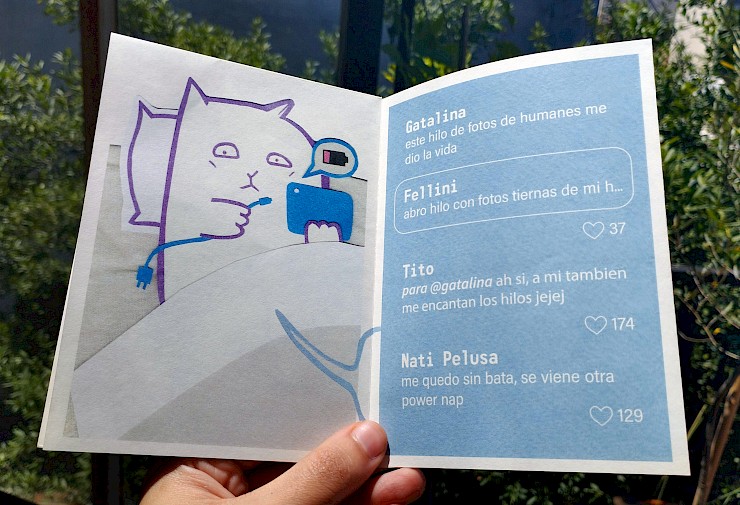 Gatalina
este hilo de fotos de humanes me
dio la vida
Fellini
abro hilo con fotos tiernas de mi h...
37
Tito
para @gatalina ah si, a mi tambien
me encantan los hilos jejej
174
Nati Pelusa
me quedo sin bata, se viene otra
power nap
129